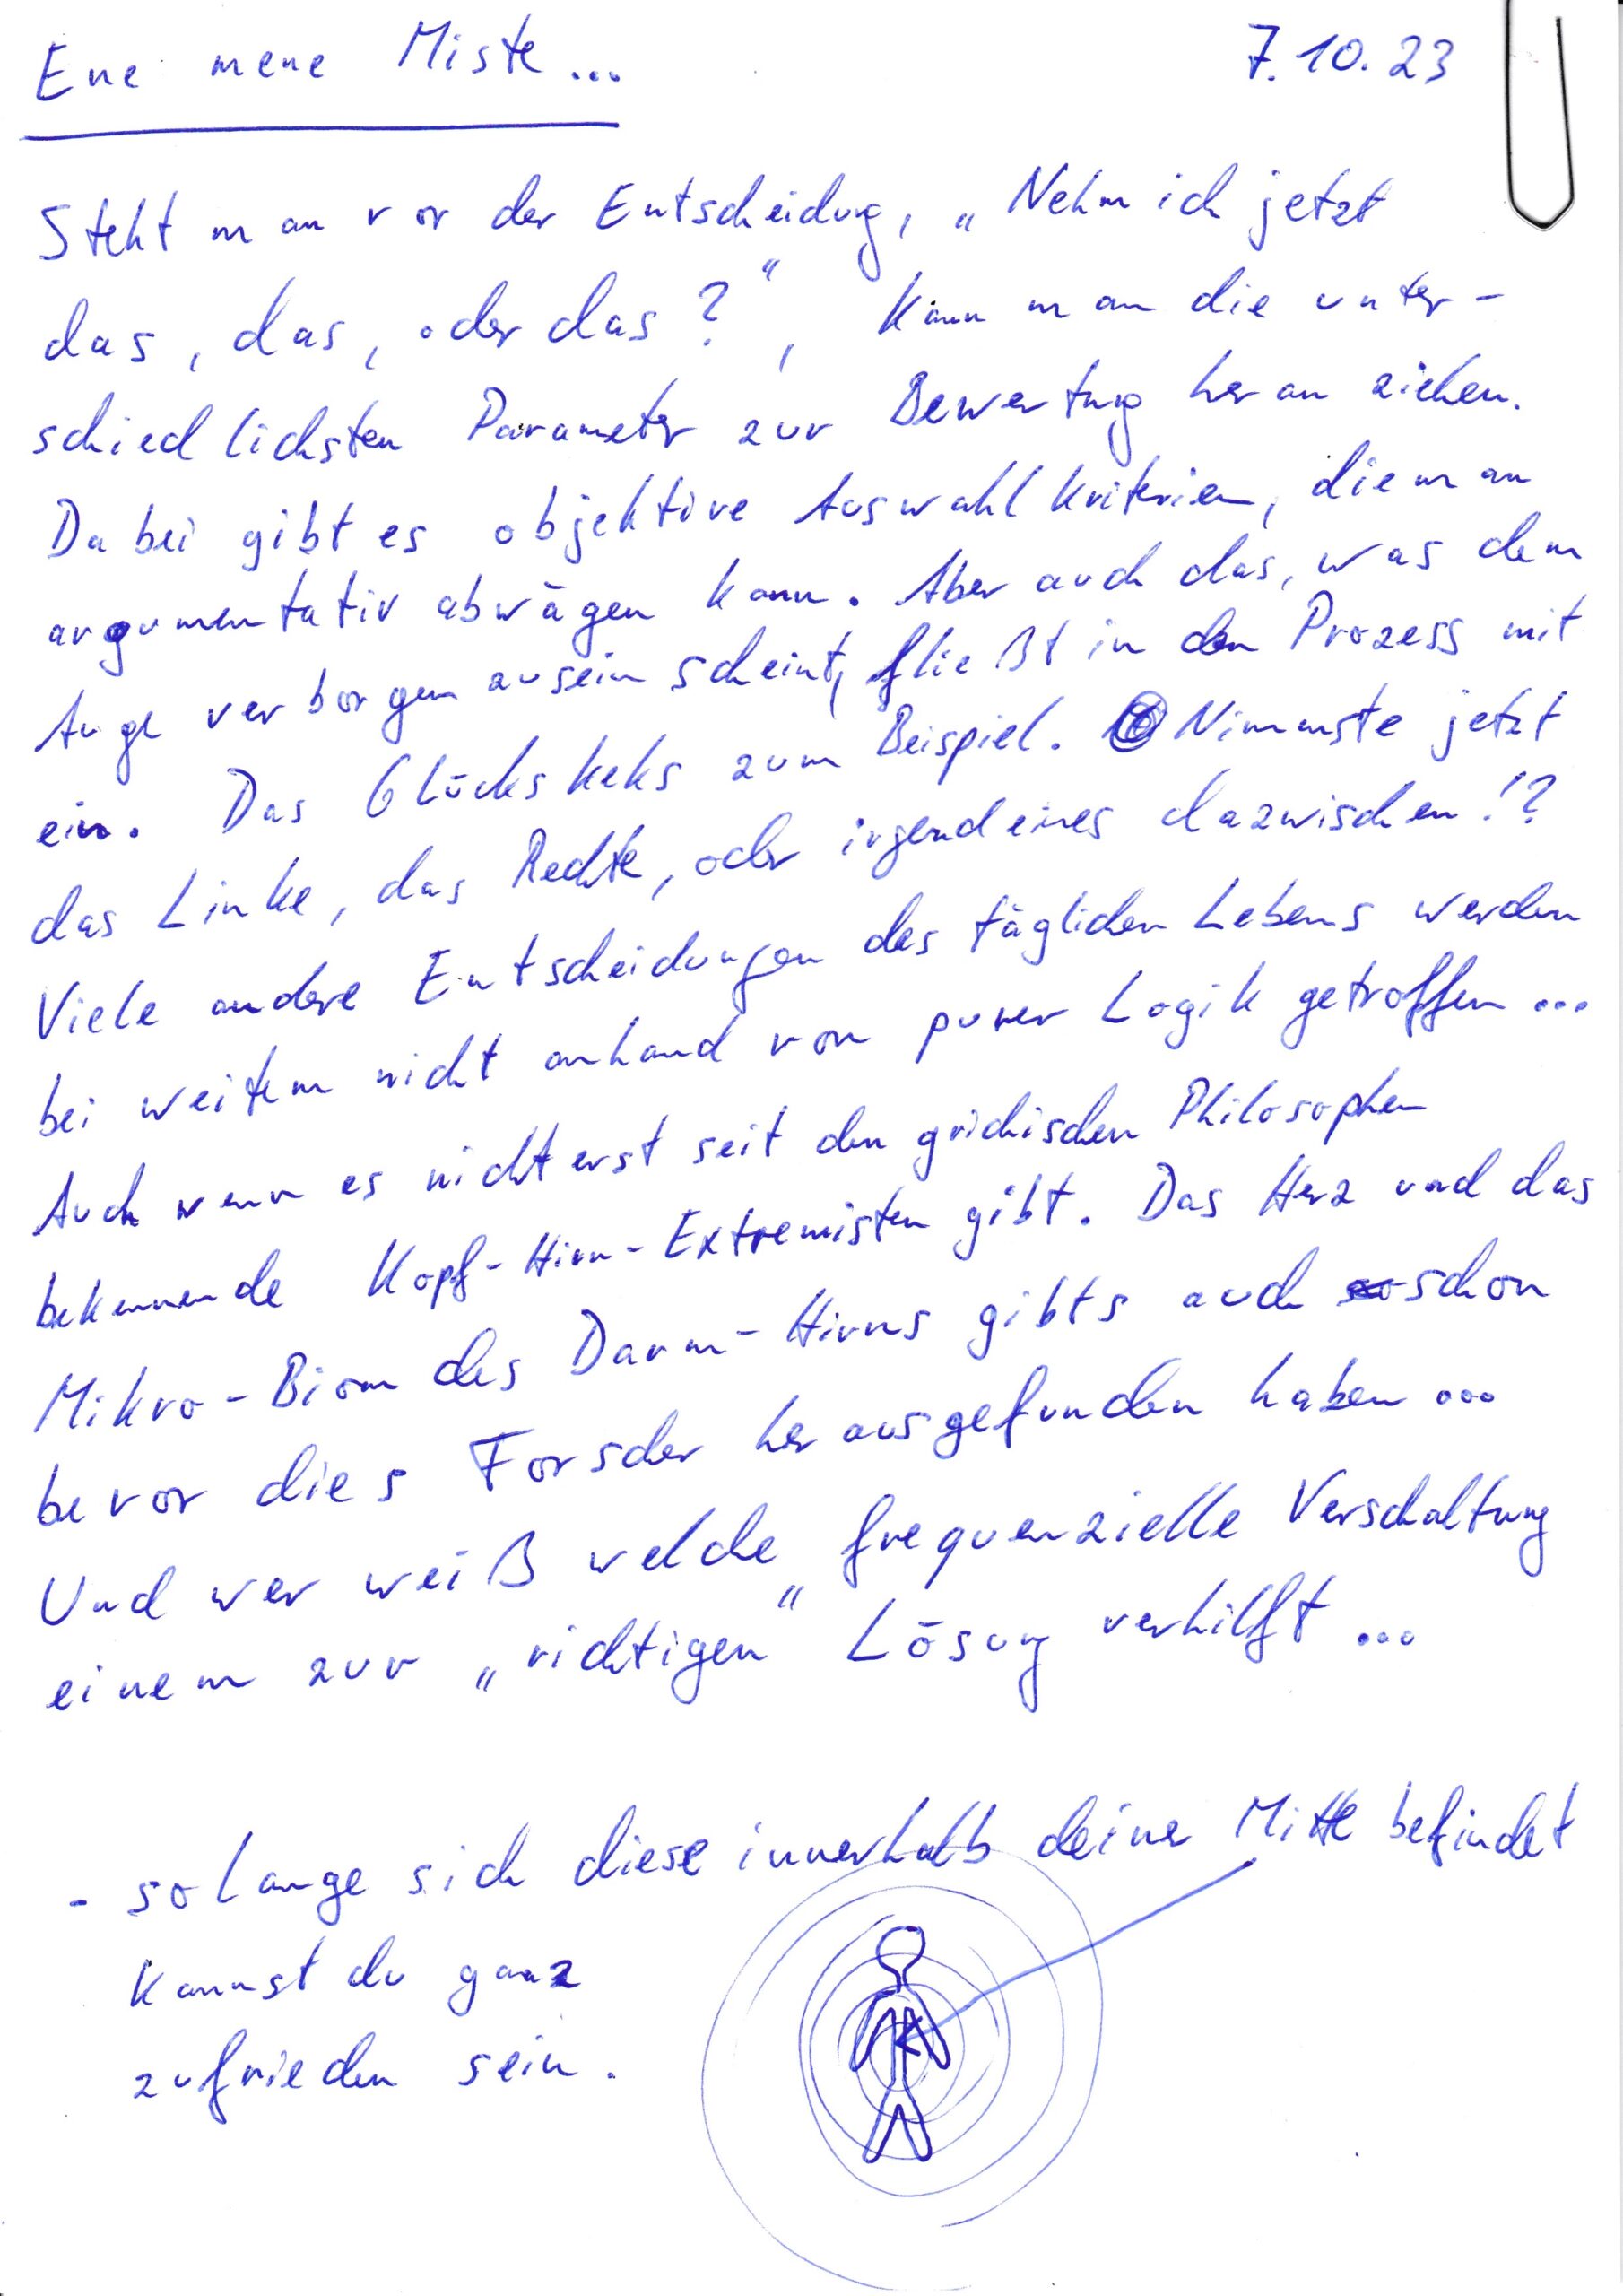 Ene mene Miste... 7.10.23
Steht man vor der Entscheidung, „Nehm ich jetzt
das, das, oder das?", kann man die unter-
schiedlichsten Parameter zur Bewertung heran ziehen.
Dabei gibt es objektive Auswahlkriterien, die man
argumentativ abwägen kann. Aber auch das, was dem
Auge verborgen zu sein scheint, fließt in den Prozess mit
ein. Das Glückskeks zum Beispiel. Nimmste jetzt
das Linke, das Rechte, oder irgendeines dazwischen!?
Viele andere Entscheidungen des täglichen Lebens werden
bei weitem nicht anhand von purer Logik getroffen...
Auch wenn es nicht erst seit den grichischen Philosophen
bekennende Kopf-Hirn-Extremisten gibt. Das Herz und das
Mikro-Biom des Darm-Hirns gibts auch schon
bevor dies Forscher herausgefunden haben...
Und wer weiß welche frequenzielle Verschaltung
einem zur „richtigen" Lösung verhilft...
- solange sich diese innerhalb deiner Mitte befindet
kannst du ganz
zufrieden sein.